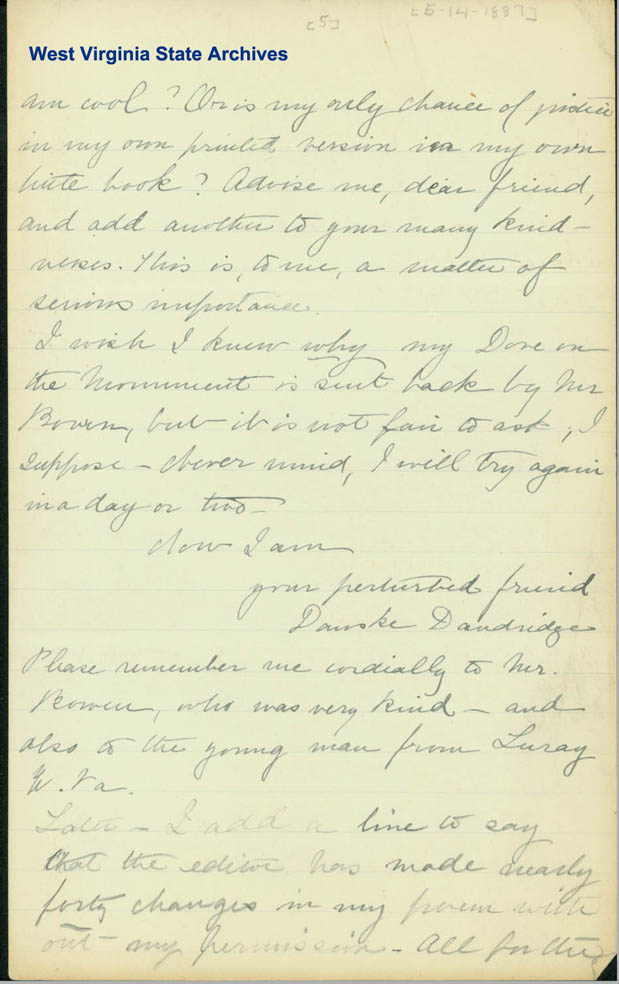 [5]
[5-14-1887]
West Virginia State Archives
am cool? Or is my only chance of justice
in my own printed version in my own
little book? Advise me, dear friend,
and add another to your many kind-
nesses. This is, to me, a matter of
serious importance.
I wish I knew why my Dove on
the Monument is sent back by Mr
Bowen, but it is not fair to ask, I
suppose - Never mind, I will try again
in a day or two-
Now I am
your perturbed friend
Danske Dandridge
Please remember me cordially to Mr.
Bowen, who was very kind - and
also to the young man from Luray
W. Va.
Later - I add a line to say
that the editor has made nearly
forty changes in my poem with
out my permission - All for the